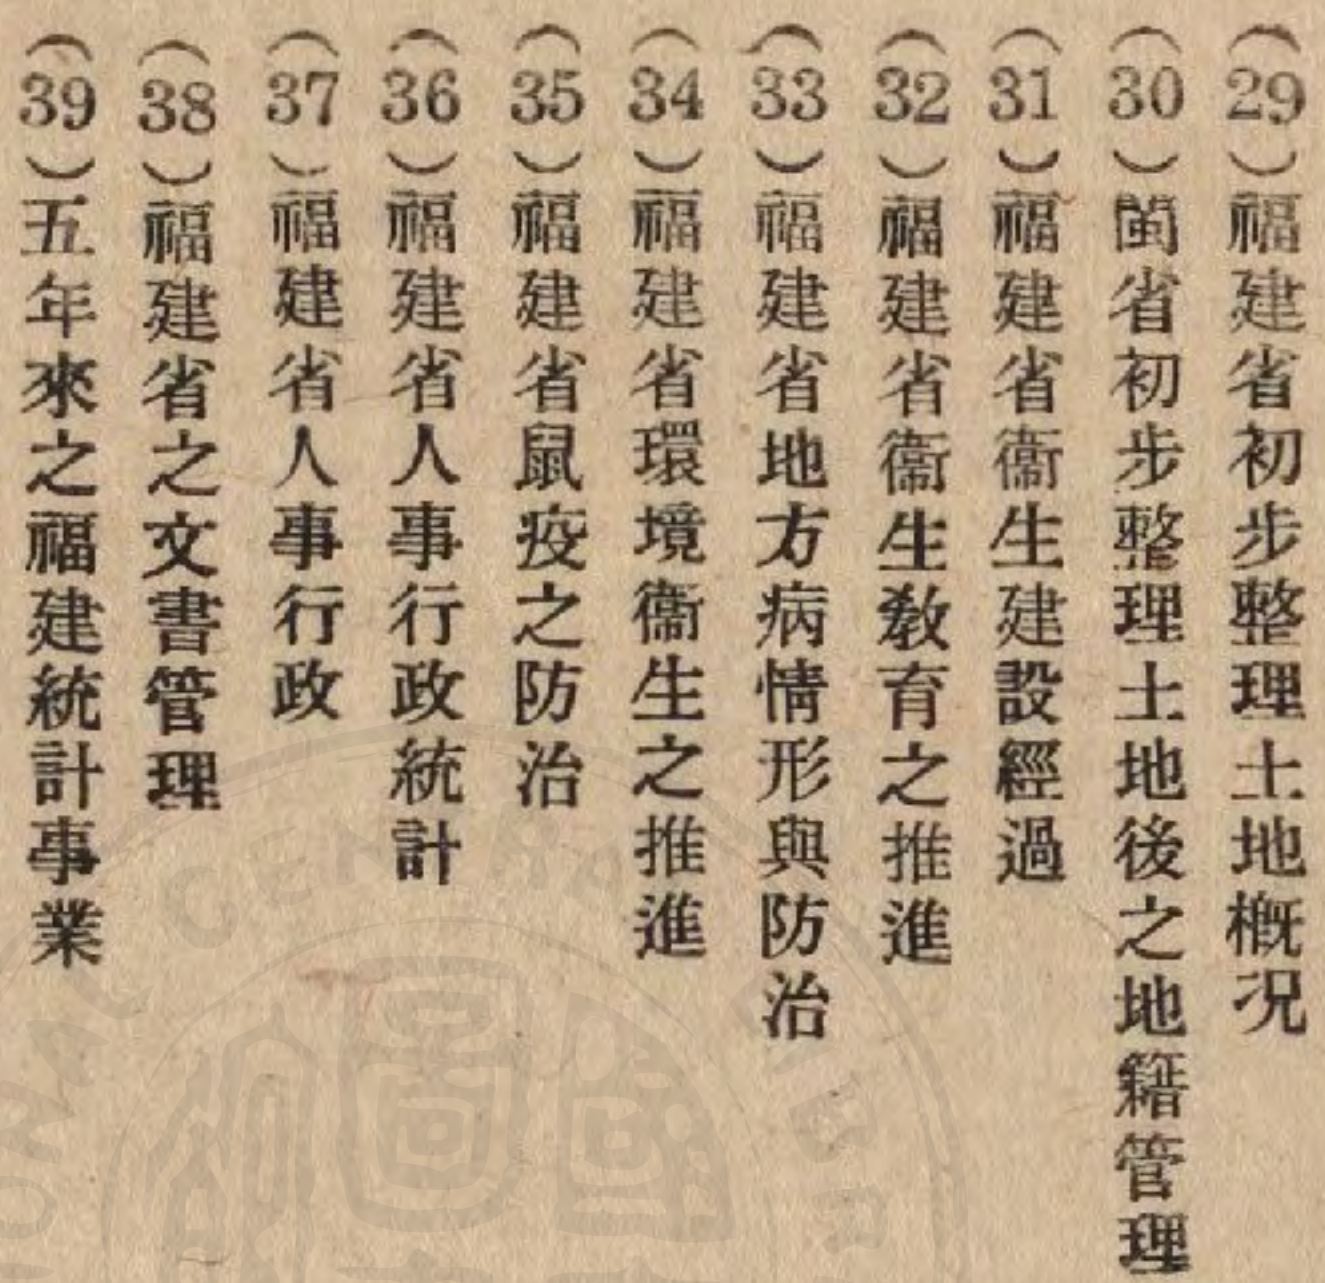 （29）福建省初步整理土地概況
（30）閩省初步整理土地後之地籍管理
（31）福建省衞生建設經過
（32）福建省衞生教育之推進
（33）福建省地方病情形與防治
（34）福建省環境衞生之推進
（35）福建省鼠疫之防治
（36）福建省人事行政統計
（37）福建省人事行政
（38）福建省之文書管理
（39）五年來之福建統計事業